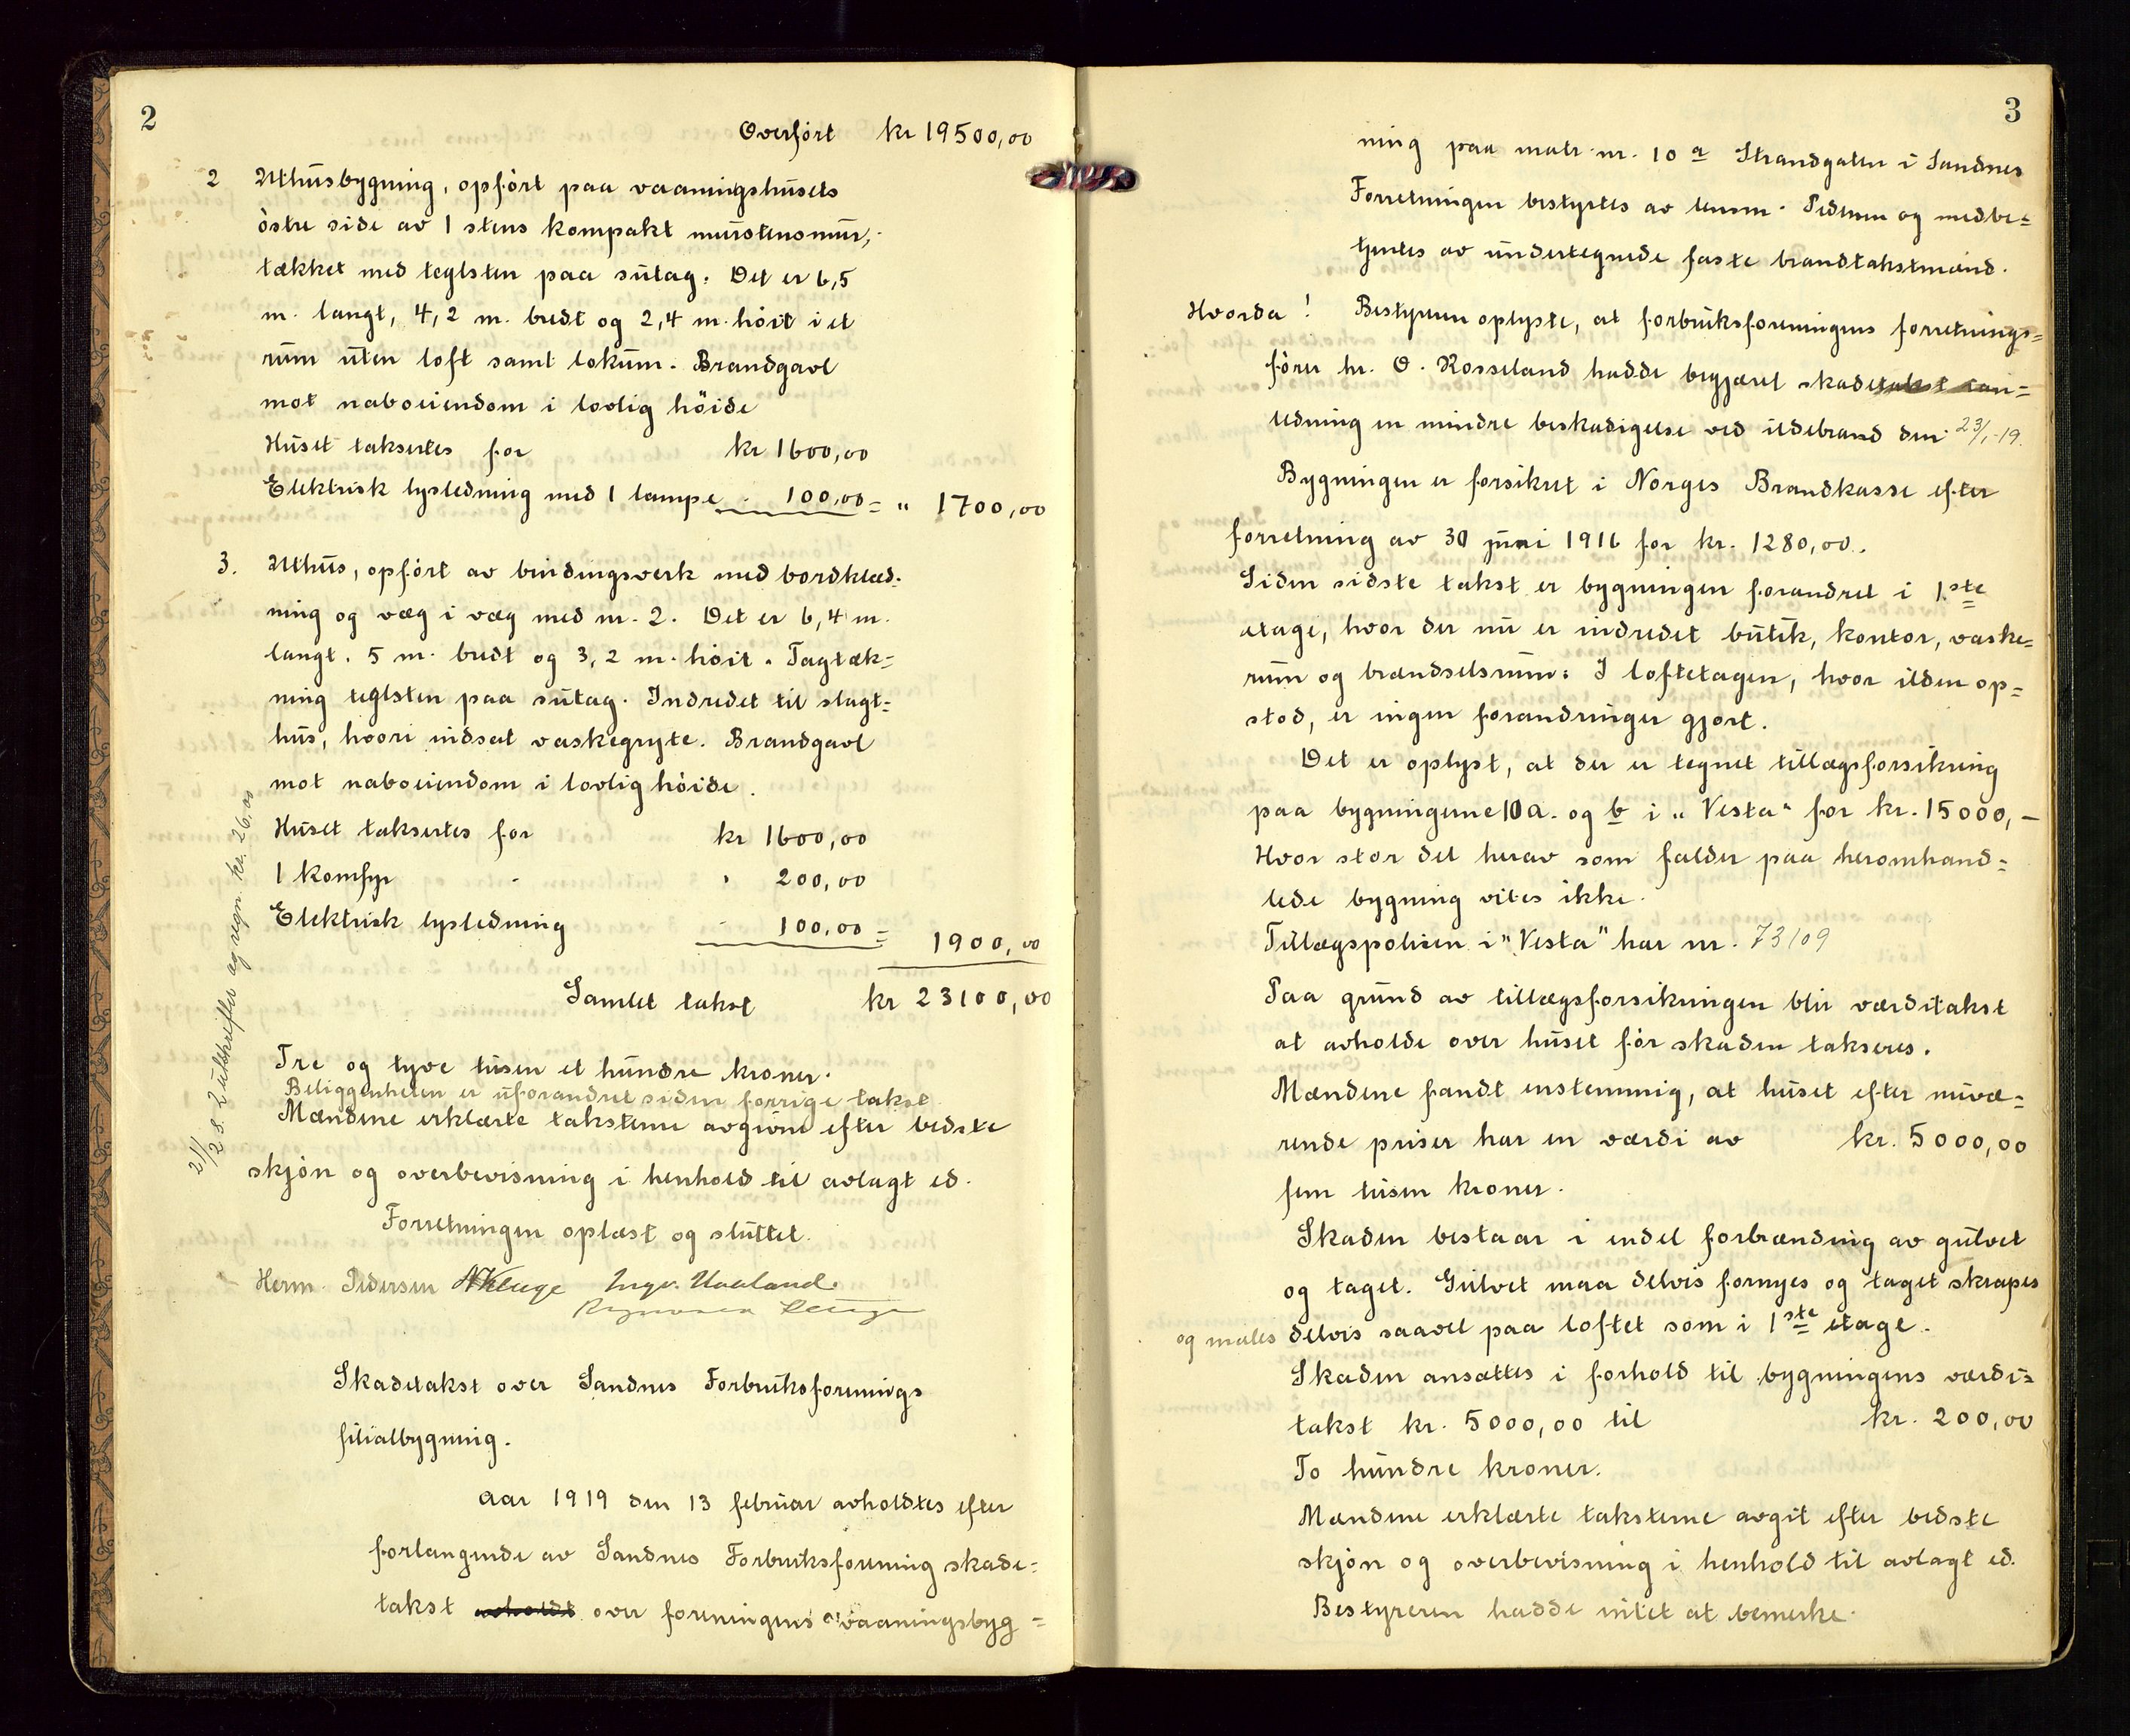 2
Overført kr 19500,00
2 Uthusbygning, opført paa vaaningshusets
østre side av 1 stens kompakt murstensmur,
tækket med teglsten paa sutag. Det er 6,5
m. langt, 4,2 m. bredt og 2,4 m. høit i et
rum uten loft samt lokum. Brandgavl
mot naboeiendom i lovlig høide
Huset takseres for kr 1600,00
Elektrisk lysledning med 1 lampe " 100,00 = " 1700,00
3. Uthus, opført av bindingsverk med bordklæd-
ning og væg i væg med nr. 2. Det er 6,4 m.
langt. 5 m. bredt og 3,2 m. høit. Tagtæk=
ning teglsten paa sutag. Indredet til slagt=
hus, hvori indsat vaskegryte. Brandgavl
mot naboeiendom i lovlig høide.
Huset takseres for kr 1600,00
1 komfyr " 200,00
Elektrisk lysledning - 100,00 = 1900,00
Samlet takst kr 23100,00
Tre og tyve tusen et hundre kroner.
Beliggenheten er uforandret siden forrige takst
Mændene erklærte taksterne avgivne efter bedste
skjøn og overbevisning i henhold til avlagt ed.
Forretningen oplæst og sluttet.
Herm. Pedersen Kluge Ingv. Haaland
21/2 8. 2 utskrifter og regn. kr. 26,00
Skadetakst over Sandnes Forbruksforenings
filialbygning.
Aar 1919 den 13 februar avholdtes efter
forlangende av Sandnes Forbruksforening skade=
takst avholdt over foreningens vaaningsbyg=
3
ning paa matr. nr. 10 a Strandgaten i Sandnes
Forretningen bestyrtes av lensm. Pedersen og medbe=
tjentes av undertegnede faste brandtakstmænd.
Hvorda! Bestyreren oplyste, at forbruksforeningens forretnings=
fører hr. O. Rosseland hadde begjæret skadetakst i an=
ledning en mindre beskadigelse ved ildebrand den 23/1-19.
Bygningen er forsikret i Norges Brandkasse efter
forretning av 30 juni 1916 for kr. 1280,00.
Siden sidste takst er bygningen forandret i 1ste
etage, hvor der nu er indredet butik, kontor, vaske=
rum og brændselsrum: I loftetagen, hvor ilden op=
stod, er ingen forandringer gjort.
Det er oplyst, at der er tegnet tillægsforsikring
paa bygningerne 10 a. og b i "Vesta" for kr. 15000,-
Hvor stor del herav som falder paa heromhand=
lede bygning vites ikke.
Tillægspolicen i "Vesta" har nr. 73109
Paa grund av tillægsforsikringen blir værditakst
at avholde over huset før skaden takseres.
Mændene fandt enstemmig, at huset efter nuvæ=
rende priser har en værdi av kr. 5000,00
fem tusen kroner.
Skaden bestaar i endel forbrænding av gulvet
og taget. Gulvet maa delvis fornyes og taget skrapes
og males delvis saavel paa loftet som i 1ste etage.
Skaden ansættes i forhold til bygningens værdi=
takst kr. 5000,00 til kr. 200,00
To hundre kroner.
Mændene erklærte taksterne avgit efter bedste
skjøn og overbevisning i henhold til avlagt ed.
Bestyreren hadde intet at bemerke.